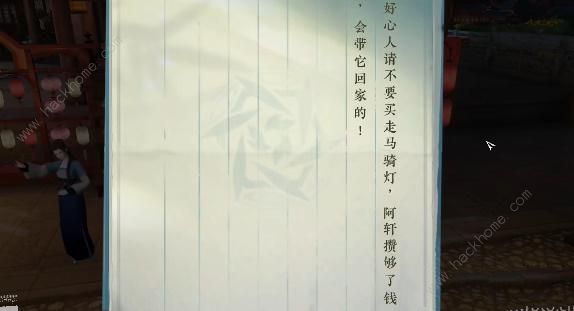 好心人请不要买走马骑灯，阿轩攒够了钱
，会带它回家的！
www.hackhome.com
www.hackhome.com
www.hackhome.com